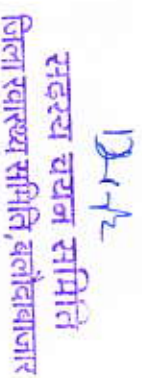 सदस्य चयन समिति
जिला स्वास्थ्य समिति,बलौदाबाजार